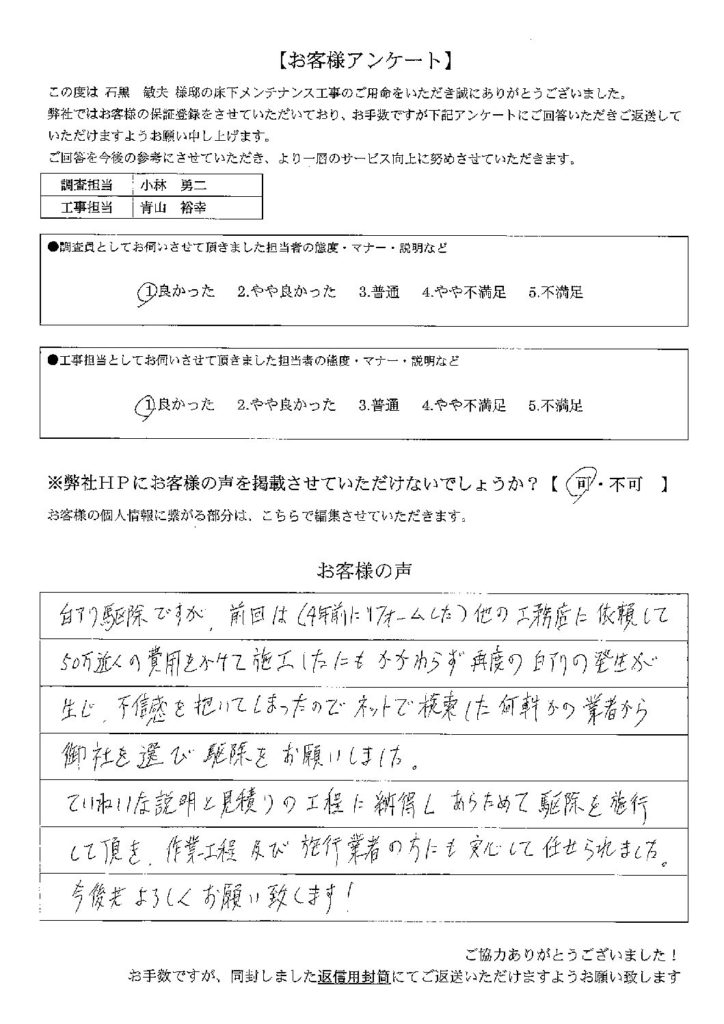 【お客様アンケート】
この度は 石黒 敏夫 様邸の床下メンテナンス工事のご用命をいただき誠にありがとうございました。
弊社ではお客様の保証登録をさせていただいており、お手数ですが下記アンケートにご回答いただきご返送して
いただけますようお願い申し上げます。
ご回答を今後の参考にさせていただき、より一層のサービス向上に努めさせていただきます。
調査担当 小林 勇二
工事担当 青山 裕幸
●調査員としてお伺いさせて頂きました担当者の態度・マナー・説明など
1.良かった 2.やや良かった 3.普通 4.やや不満足 5.不満足
●工事担当としてお伺いさせて頂きました担当者の態度・マナー・説明など
1.良かった 2.やや良かった 3.普通 4.やや不満足 5.不満足
※弊社HPにお客様の声を掲載させていただけないでしょうか？【 可・不可 】
お客様の個人情報に繋がる部分は、こちらで編集させていただきます。
お客様の声
白アリ駆除ですが、前回は（4年前にリフォームした）他の工務店に依頼して
50万近くの費用をかけて施工したにもかかわらず再度の白アリの発生が
生じ、不信感を抱いてしまったのでネットで検索した何軒かの業者から
御社を選び駆除をお願いしました。
ていねいな説明と見積りの工程に納得しあらためて駆除を施行
して頂き、作業工程及び施行業者の方にも安心して任せられました。
今後共よろしくお願い致します！
ご協力ありがとうございました！
お手数ですが、同封しました返信用封筒にてご返送いただけますようお願い致します